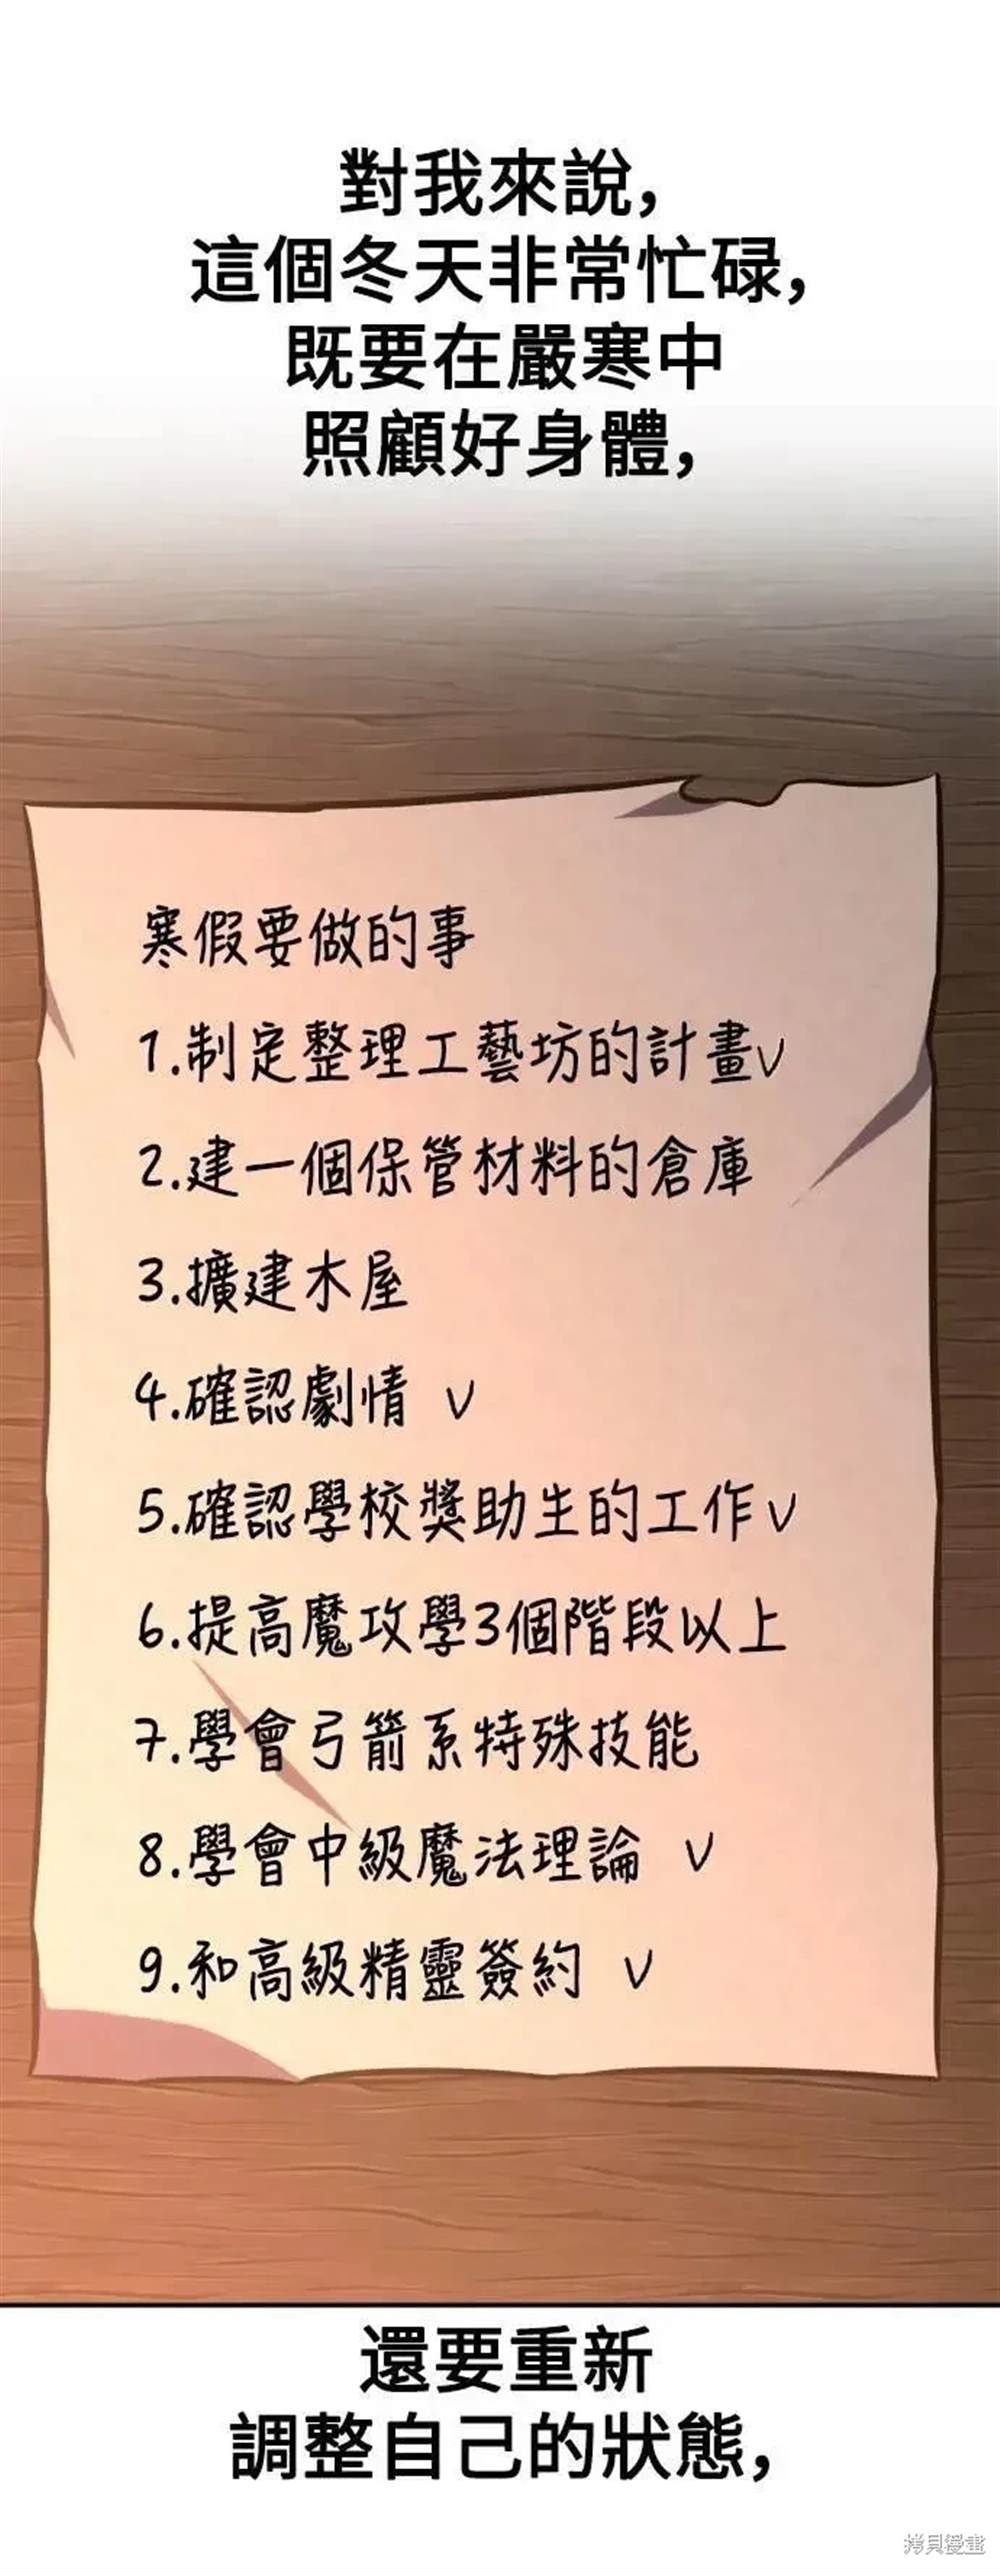 對我來說,
這個冬天非常忙碌,
既要在嚴寒中
照顧好身體,
寒假要做的事
1.制定整理工藝坊的計畫V
2.建一個保管材料的倉庫
3.擴建木屋
4.確認劇情 V
5.確認學校獎助生的工作V
6.提高魔攻學3個階段以上
7.學會弓箭系特殊技能
8.學會中級魔法理論 V
9.和高級精靈簽約 V
還要重新
調整自己的狀態,
拷貝漫畫